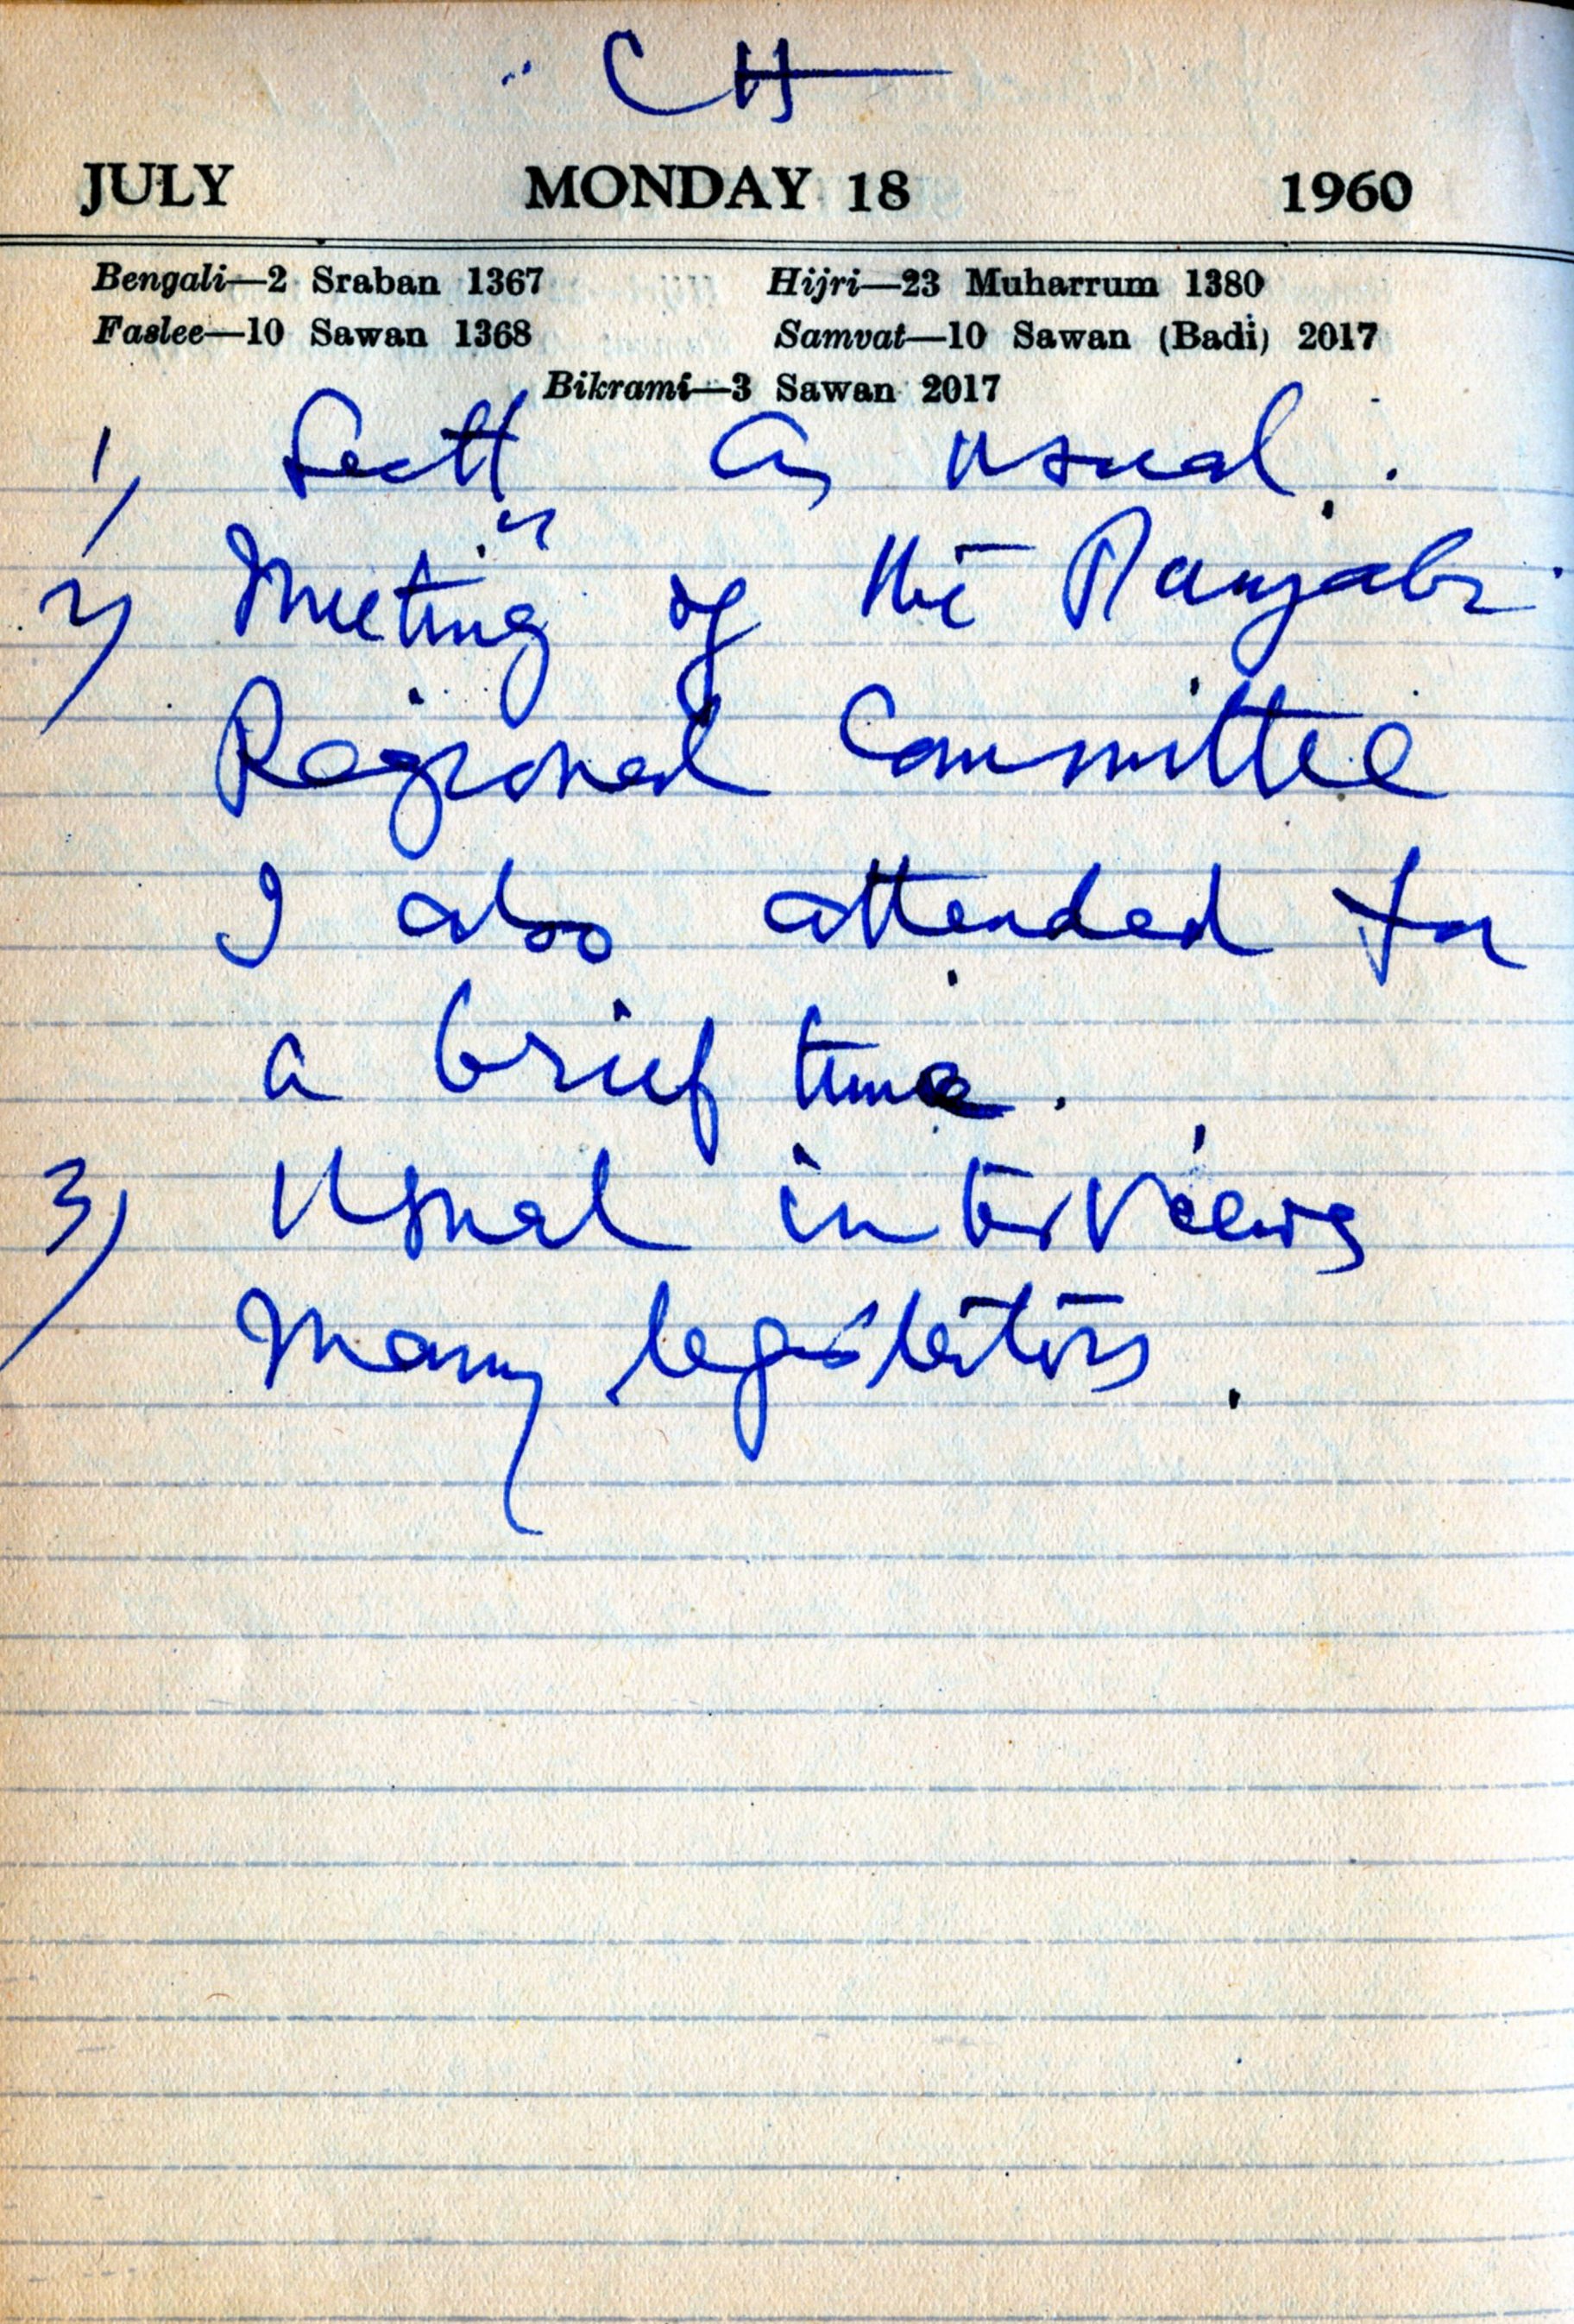 CH
JULY MONDAY 18 1960
Bengali—2 Sraban 1367 Hijri—23 Muharrum 1380
Faslee—10 Sawan 1368 Samvat—10 Sawan (Badi) 2017
Bikrami—3 Sawan 2017
1) Sectt as usual.
2) Meeting of the Panjabi
Regional Committee
I also attended for
a brief time.
3) Usual interviews
Many legislators.